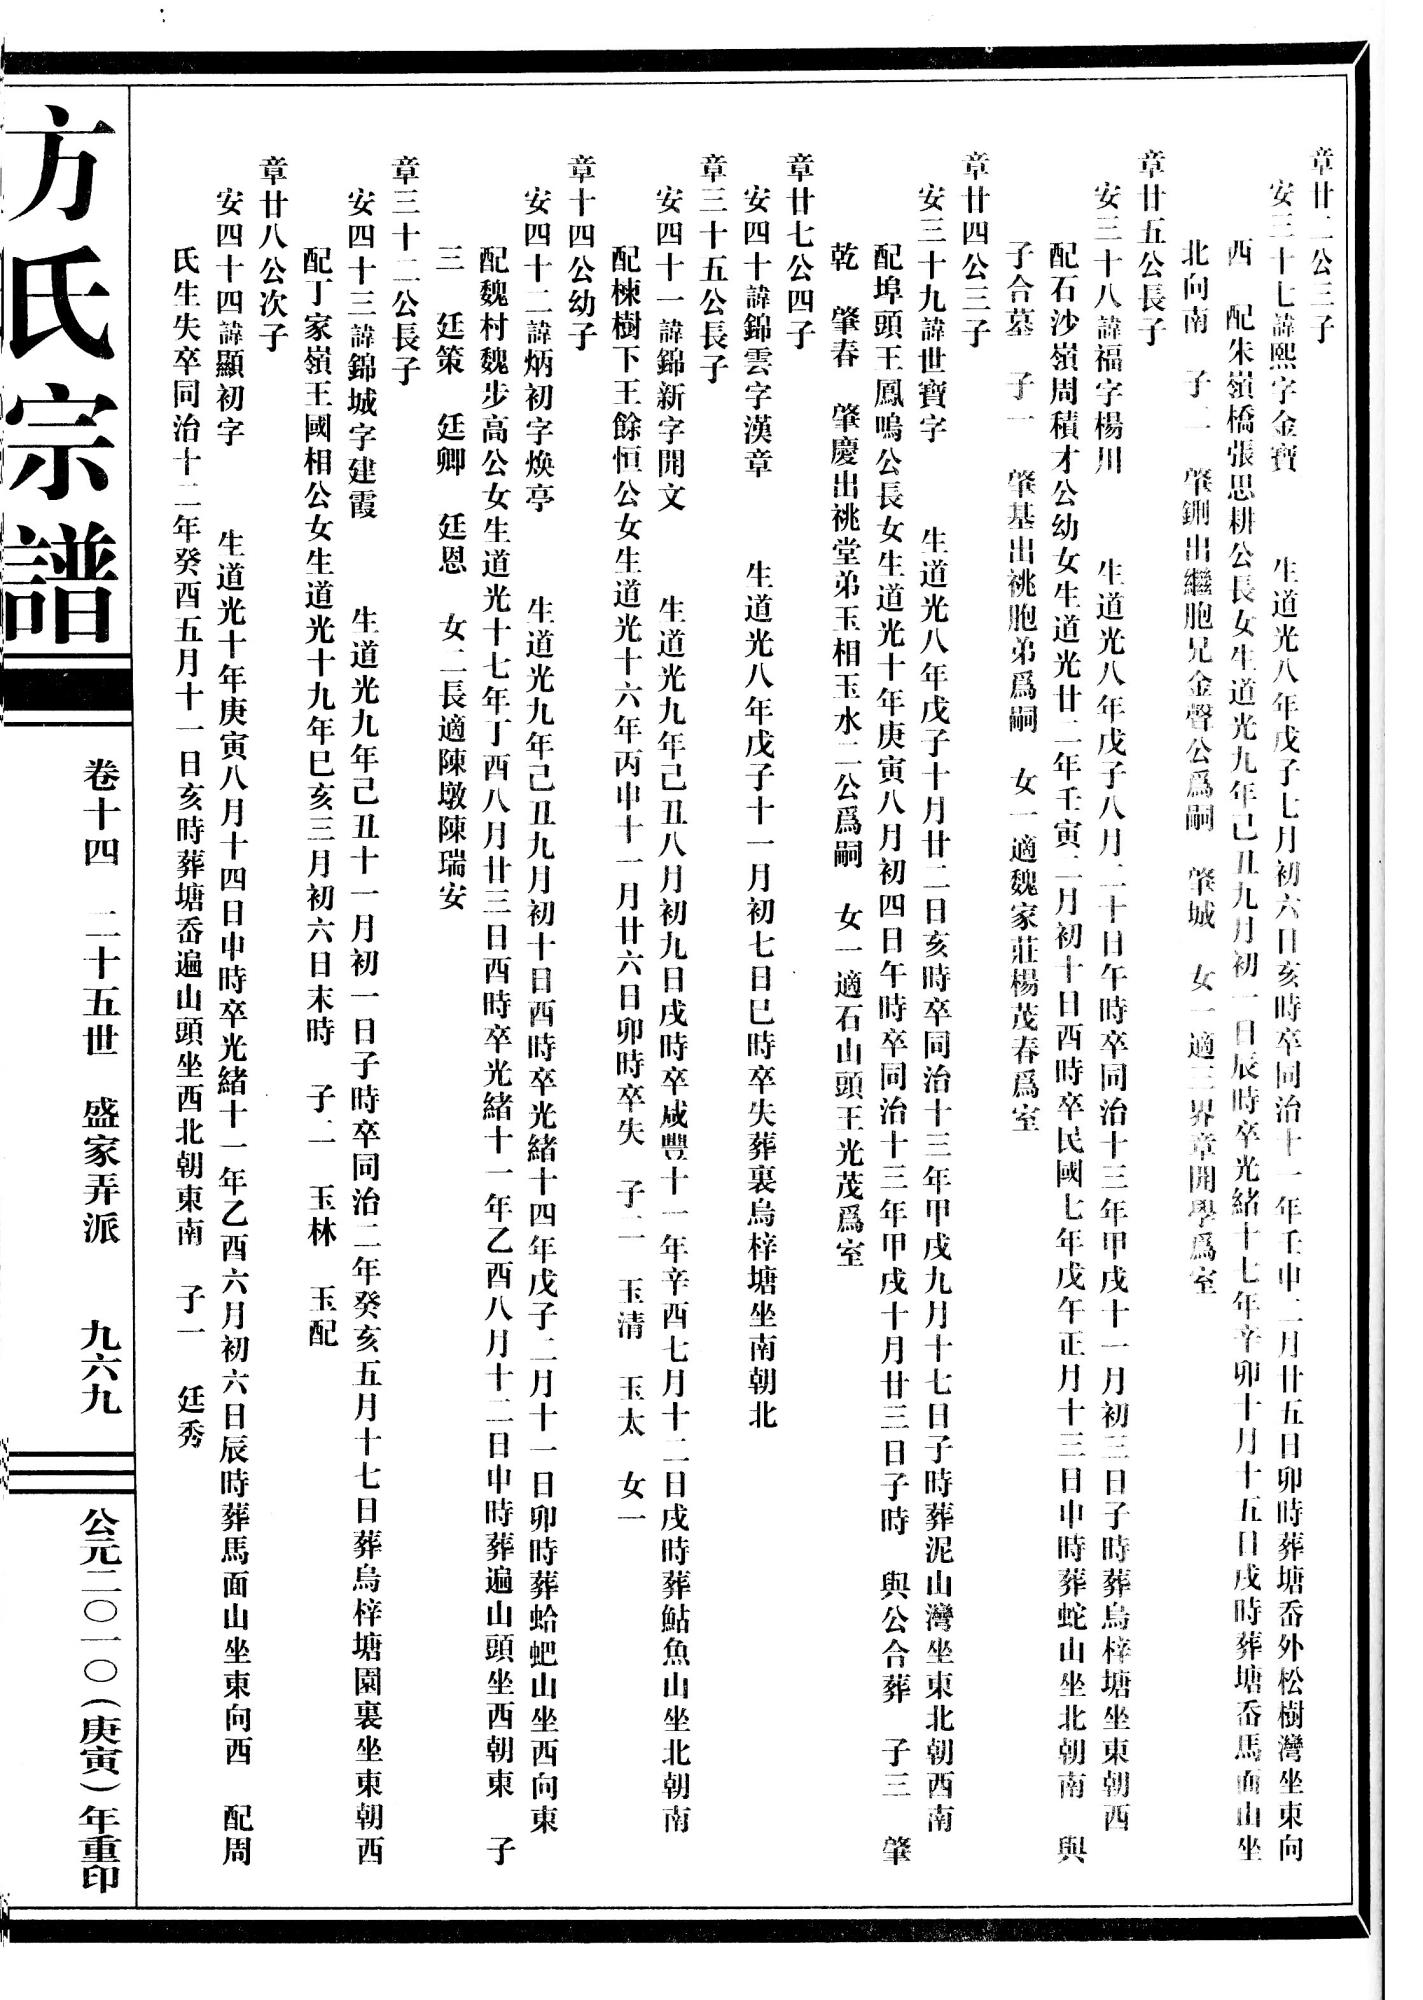 章廿二公三子
安三十七諱熙字金寶　生道光八年戊子七月初六日亥時卒同治十一年壬申二月廿五日卯時葬塘岙外松樹灣坐東向
西　配朱嶺橋張思耕公長女生道光九年己丑九月初一日辰時卒光緒十七年辛卯十月十五日戌時葬塘岙馬面山坐
北向南　子二　肇鍘出繼胞兄金聲公爲嗣　肇城　女一適三界章開學爲室
章廿五公長子
安三十八諱福字楊川　生道光八年戊子八月二十日午時卒同治十三年甲戌十一月初三日子時葬烏梓塘坐東朝西
配石沙嶺周積才公幼女生道光廿二年壬寅二月初十日酉時卒民國七年戊午正月十三日申時葬蛇山坐北朝南　與
子合墓　子一　肇基出祧胞弟爲嗣　女一適魏家莊楊茂春爲室
章廿四公三子
安三十九諱世寶字　生道光八年戊子十月廿二日亥時卒同治十三年甲戌九月十七日子時葬泥山灣坐東北朝西南
配埠頭王鳳鳴公長女生道光十年庚寅八月初四日午時卒同治十三年甲戌十月廿三日子時　與公合葬　子三　肇
乾　肇春　肇慶出祧堂弟玉相玉水二公爲嗣　女一適石山頭王光茂爲室
章廿七公四子
安四十諱錦雲字漢章　生道光八年戊子十一月初七日巳時卒失葬裏烏梓塘坐南朝北
章三十五公長子
安四十一諱錦新字開文　生道光九年己丑八月初九日戌時卒咸豐十一年辛酉七月十二日戌時葬鮎魚山坐北朝南
配棟樹下王餘恒公女生道光十六年丙申十一月廿六日卯時卒失　子二　玉清　玉太　女一
章十四公幼子
安四十二諱炳初字煥亭　生道光九年己丑九月初十日酉時卒光緒十四年戊子二月十一日卯時葬蛤蚆山坐西向東
配魏村魏步高公女生道光十七年丁酉八月廿三日酉時卒光緒十一年乙酉八月十二日申時葬遍山頭坐西朝東　子
三　廷策　廷卿　廷恩　女二長適陳墩陳瑞安
章三十二公長子
安四十三諱錦城字建霞　生道光九年己丑十一月初一日子時卒同治二年癸亥五月十七日葬烏梓塘園裏坐東朝西
配丁家嶺王國相公女生道光十九年巳亥三月初六日末時　子二　玉林　玉配
章廿八公次子
安四十四諱顯初字　生道光十年庚寅八月十四日申時卒光緒十一年乙酉六月初六日辰時葬馬面山坐東向西　配周
氏生失卒同治十二年癸酉五月十一日亥時葬塘岙遍山頭坐西北朝東南　子一　廷秀
方氏宗譜
卷十四　二十五世　盛家弄派　九六九
公元二〇一〇（庚寅）年重印